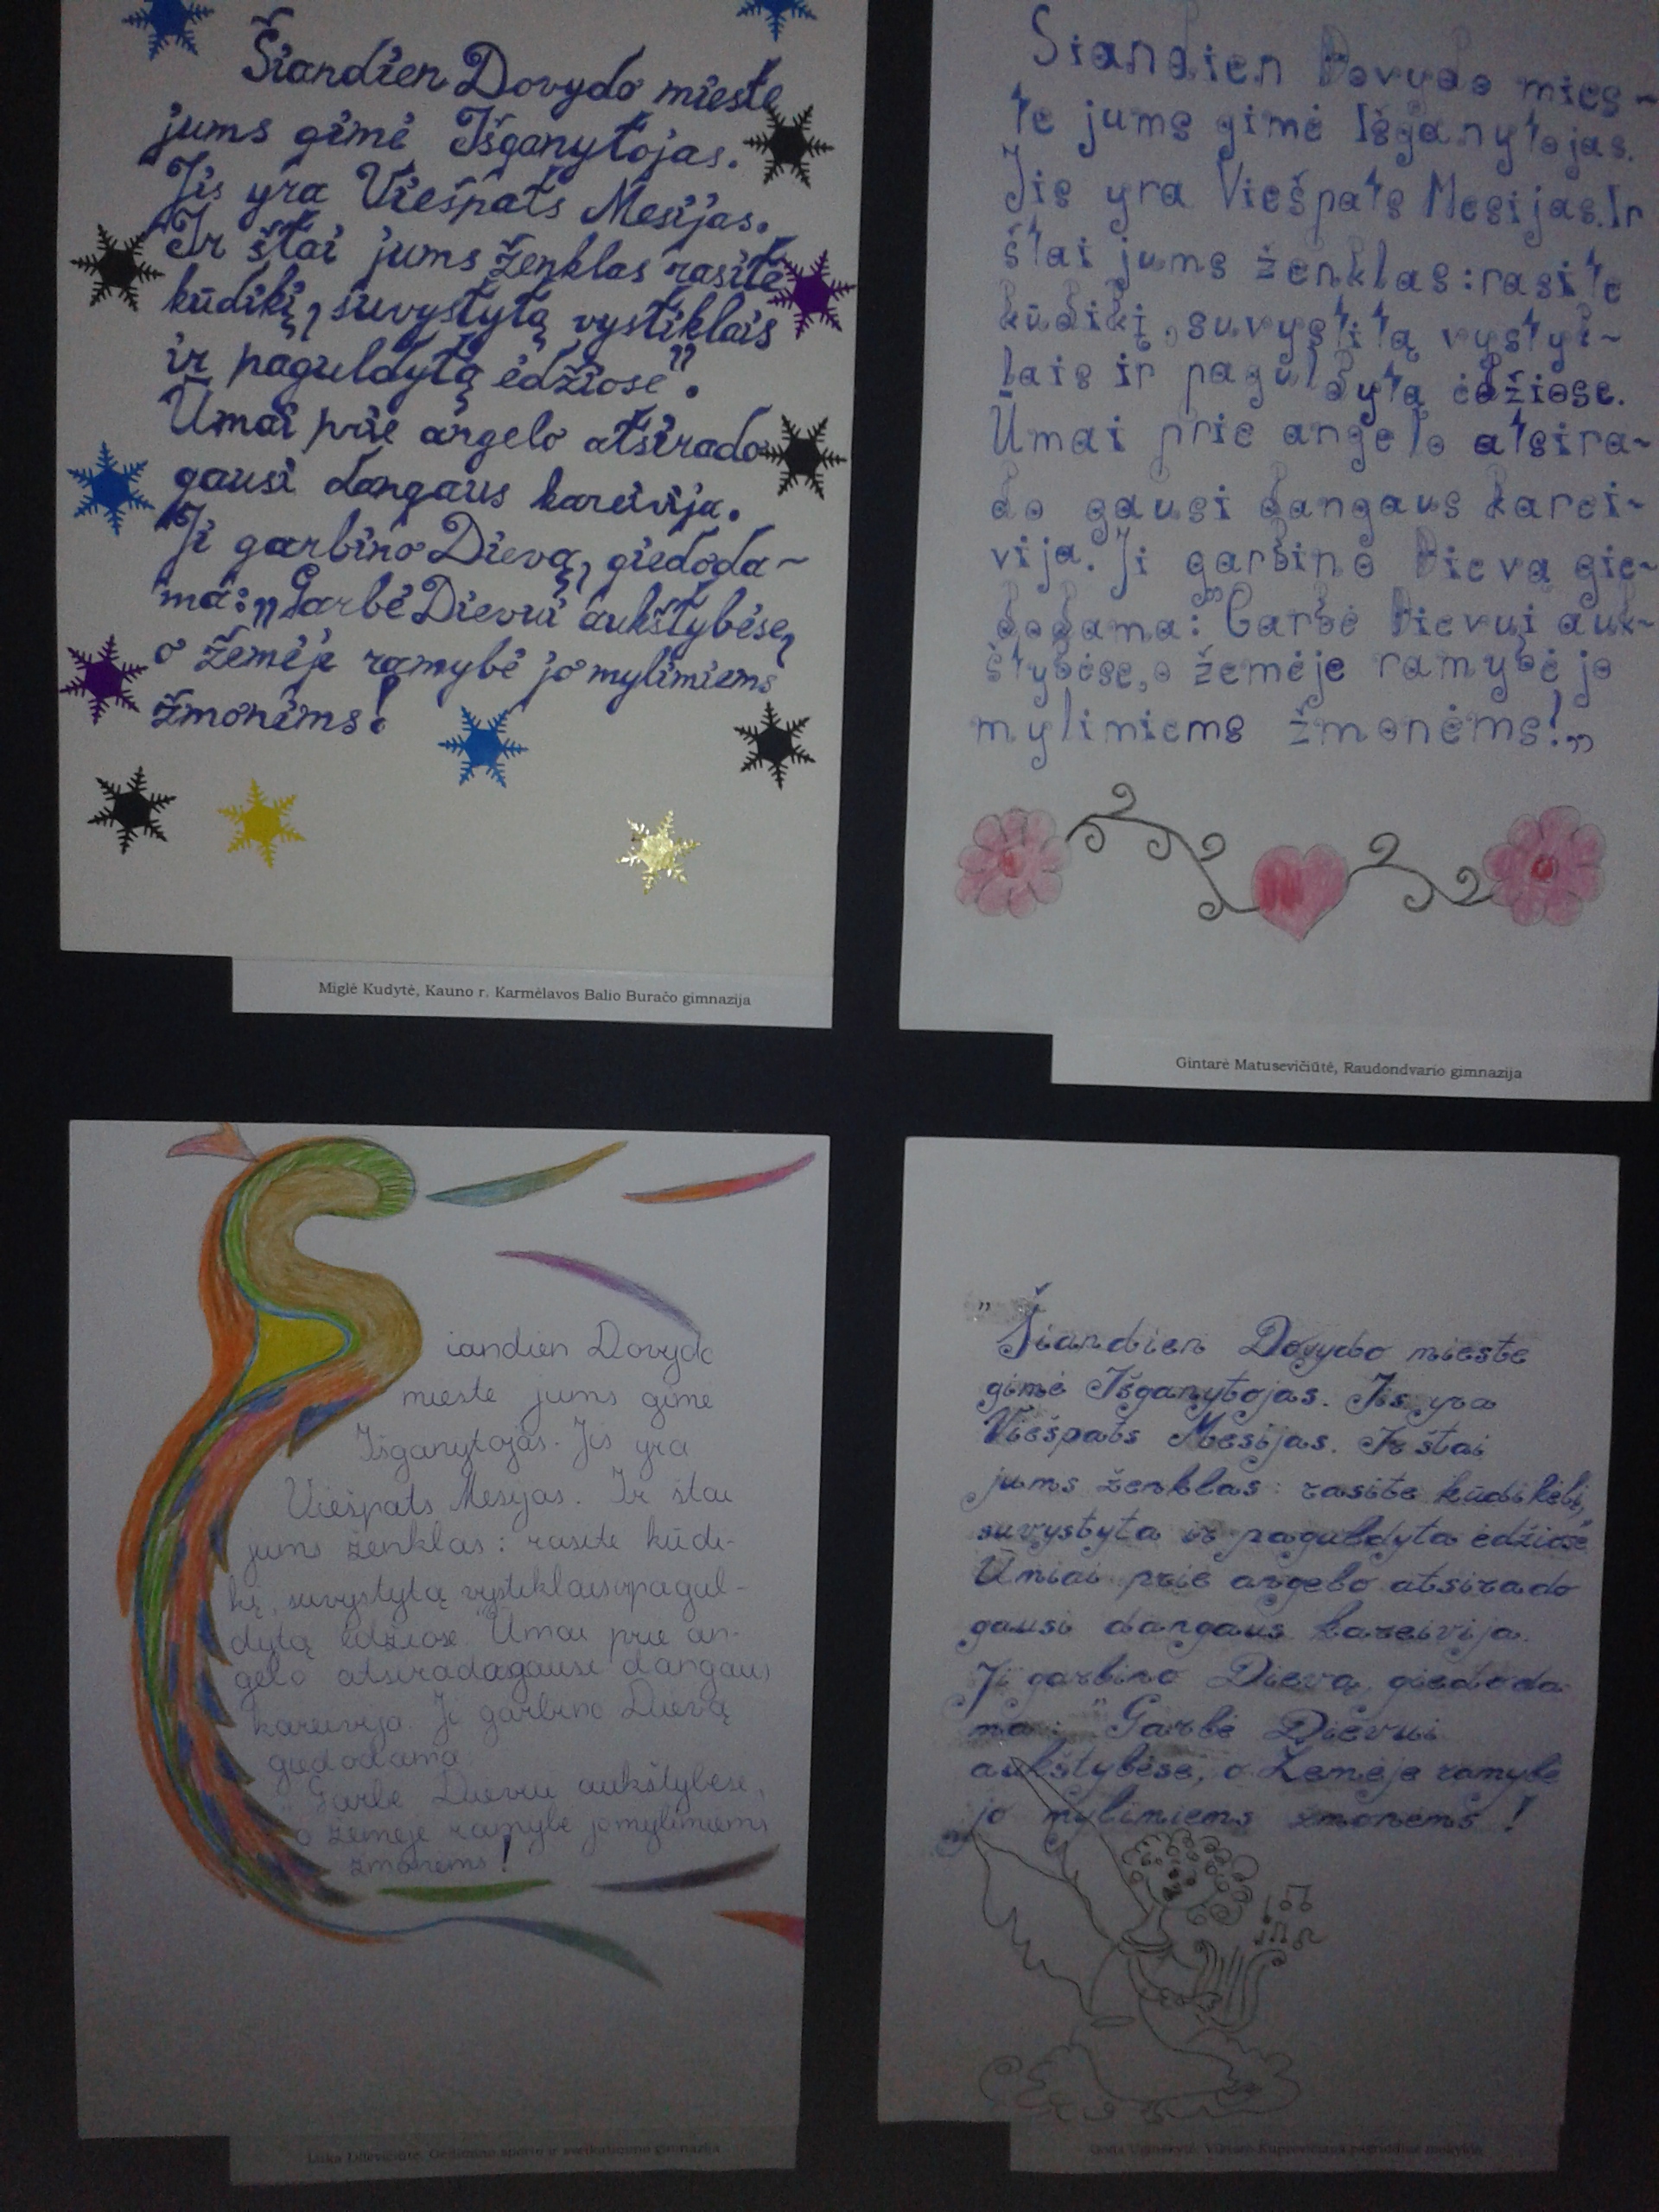 Šiandien Dovydo mieste
jums gimė Išganytojas.
Jis yra Viešpats Mesijas.
Ir štai jums ženklas rasite
kūdikį, suvystytą vystiklais
ir paguldytą ėdžiose”.
Ūmai prie angelo atsirado
gausi dangaus kareivija.
Ji garbino Dievą, giedoda~
ma: „Garbė Dievui aukštybėse,
o žemėje ramybė jo mylimiems
žmonėms!
Miglė Kudytė, Kauno r. Karmėlavos Balio Buračo gimnazija
Siandien Dovydo mies~
te jums gimė Išganytojas.
Jis yra Viešpats Mesijas. Ir
štai jums ženklas: rasite
kūdikį, suvystitą vystyk~
lais ir paguldytą ėdžiose.
Ūmai prie angelo atsira~
do gausi dangaus karei~
vija. Ji garbino Dievą gie~
dodama: "Garbė Dievui auk~
štybėse, o žemėje ramybė jo
myliniems žmonėms!„
Gintarė Matusevičiūtė, Raudondvario gimnazija
iandien Dovydo
mieste jums gimė
Išganytojas. Jis yra
Viešpats Mesijas. Ir štai
jums ženklas: rasite kūdi-
kį, suvystytą vystiklais ir pagul-
dytą ėdžiose" Ūmai prie an-
gelo atsirado gausi dangaus
kareivija. Ji garbino Dievą
giedodama
"Garbė Dievui aukštybėse,
o žemėje ramybė jo mylimiems
žmonėms!
gimnazija
" Šiandien Dovydo mieste
gimė Išganytojas. Jis yra
Viešpats Mesijas. Ir štai
jums ženklas: rasite kūdikėlį,
suvystyta ir paguldyta ėdžiose"
Ūmiai prie angelo atsirado
gausi dangaus kareivija.
Ji garbino Dievą, giedoda-
ma: "Garbė Dievui
aukštybėse, o Žemėje ramybė
jo mylimiems žmonėms!